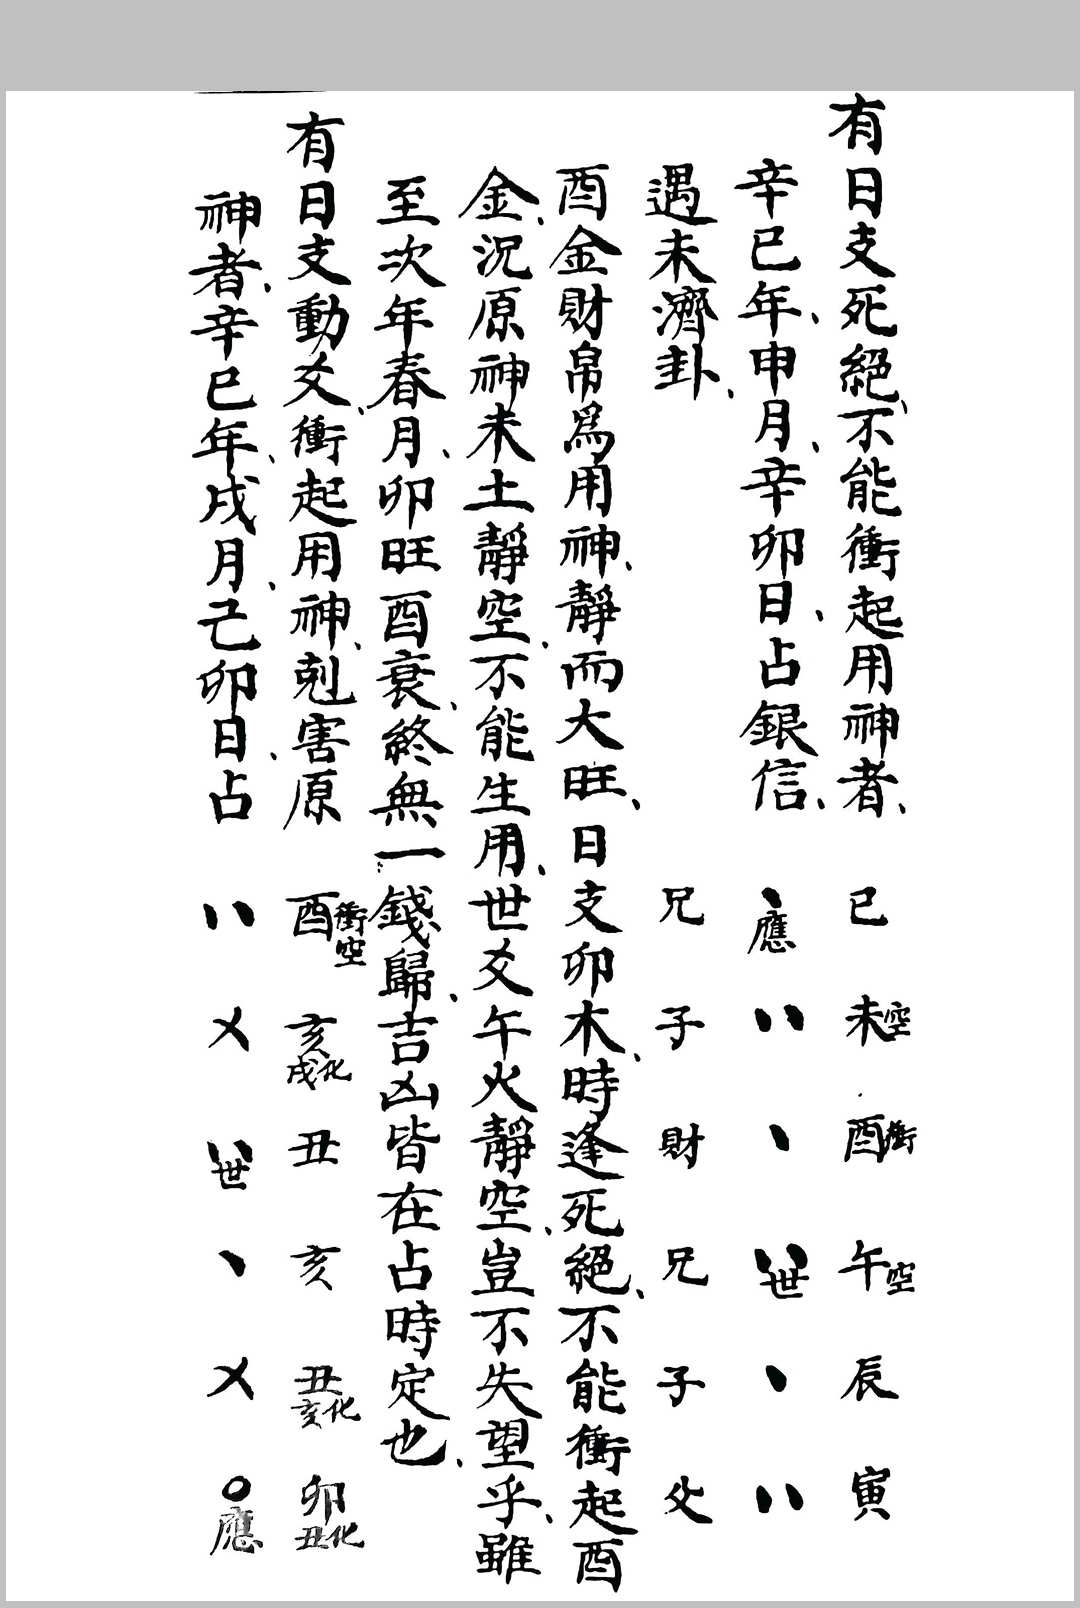 有日支死絕、不能衝起用神者、 巳 未空 酉衝 午空 辰 寅
辛巳年、申月、辛卯日、占銀信、 、應 〃 、 〃世 、 〃
遇未濟卦、 兄 子 財 兄 子 父
酉金財帛爲用神、靜而大旺、日支卯木、時逢死絕、不能衝起酉
金、況原神未土靜空、不能生用、世爻午火靜空、豈不失望乎、雖
至次年春月、卯旺酉衰、終無一錢歸、吉凶皆在占時定也、
有日支動爻、衝起用神、剋害原 酉衝空 亥化戌 丑 亥 丑化亥 卯化丑
神者、辛巳年、戌月、己卯日、占 〃 乂 〃世 、 乂 〇應